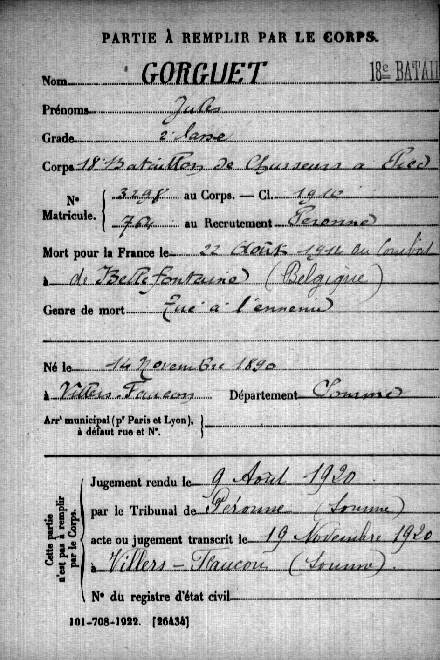 PARTIE À REMPLIR PAR LE CORPS.
Nom GORGUET 18e BATAI
Prénoms Jules
Grade 2e classe
Corps 18 Bataillon de Chasseurs a Pied
N° Matricule. 3298 au Corps. — Cl. 1910
764 au Recrutement Peronne
Mort pour la France le 22 Août 1914 au Combat
à de Bellefontaine (Belgique)
Genre de mort Tué à l'ennemi
Né le 14 Novembre 1890
à Villers-Faucon Département Somme
Arrt municipal (pr Paris et Lyon),
à défaut rue et N°.
Cette partie n'est pas à remplir par le Corps.
Jugement rendu le 9 Août 1920
par le Tribunal de Péronne (Somme)
acte ou jugement transcrit le 19 Novembre 1920
à Villers-Faucon (Somme).
N° du registre d'état civil
101-708-1922. [26434]